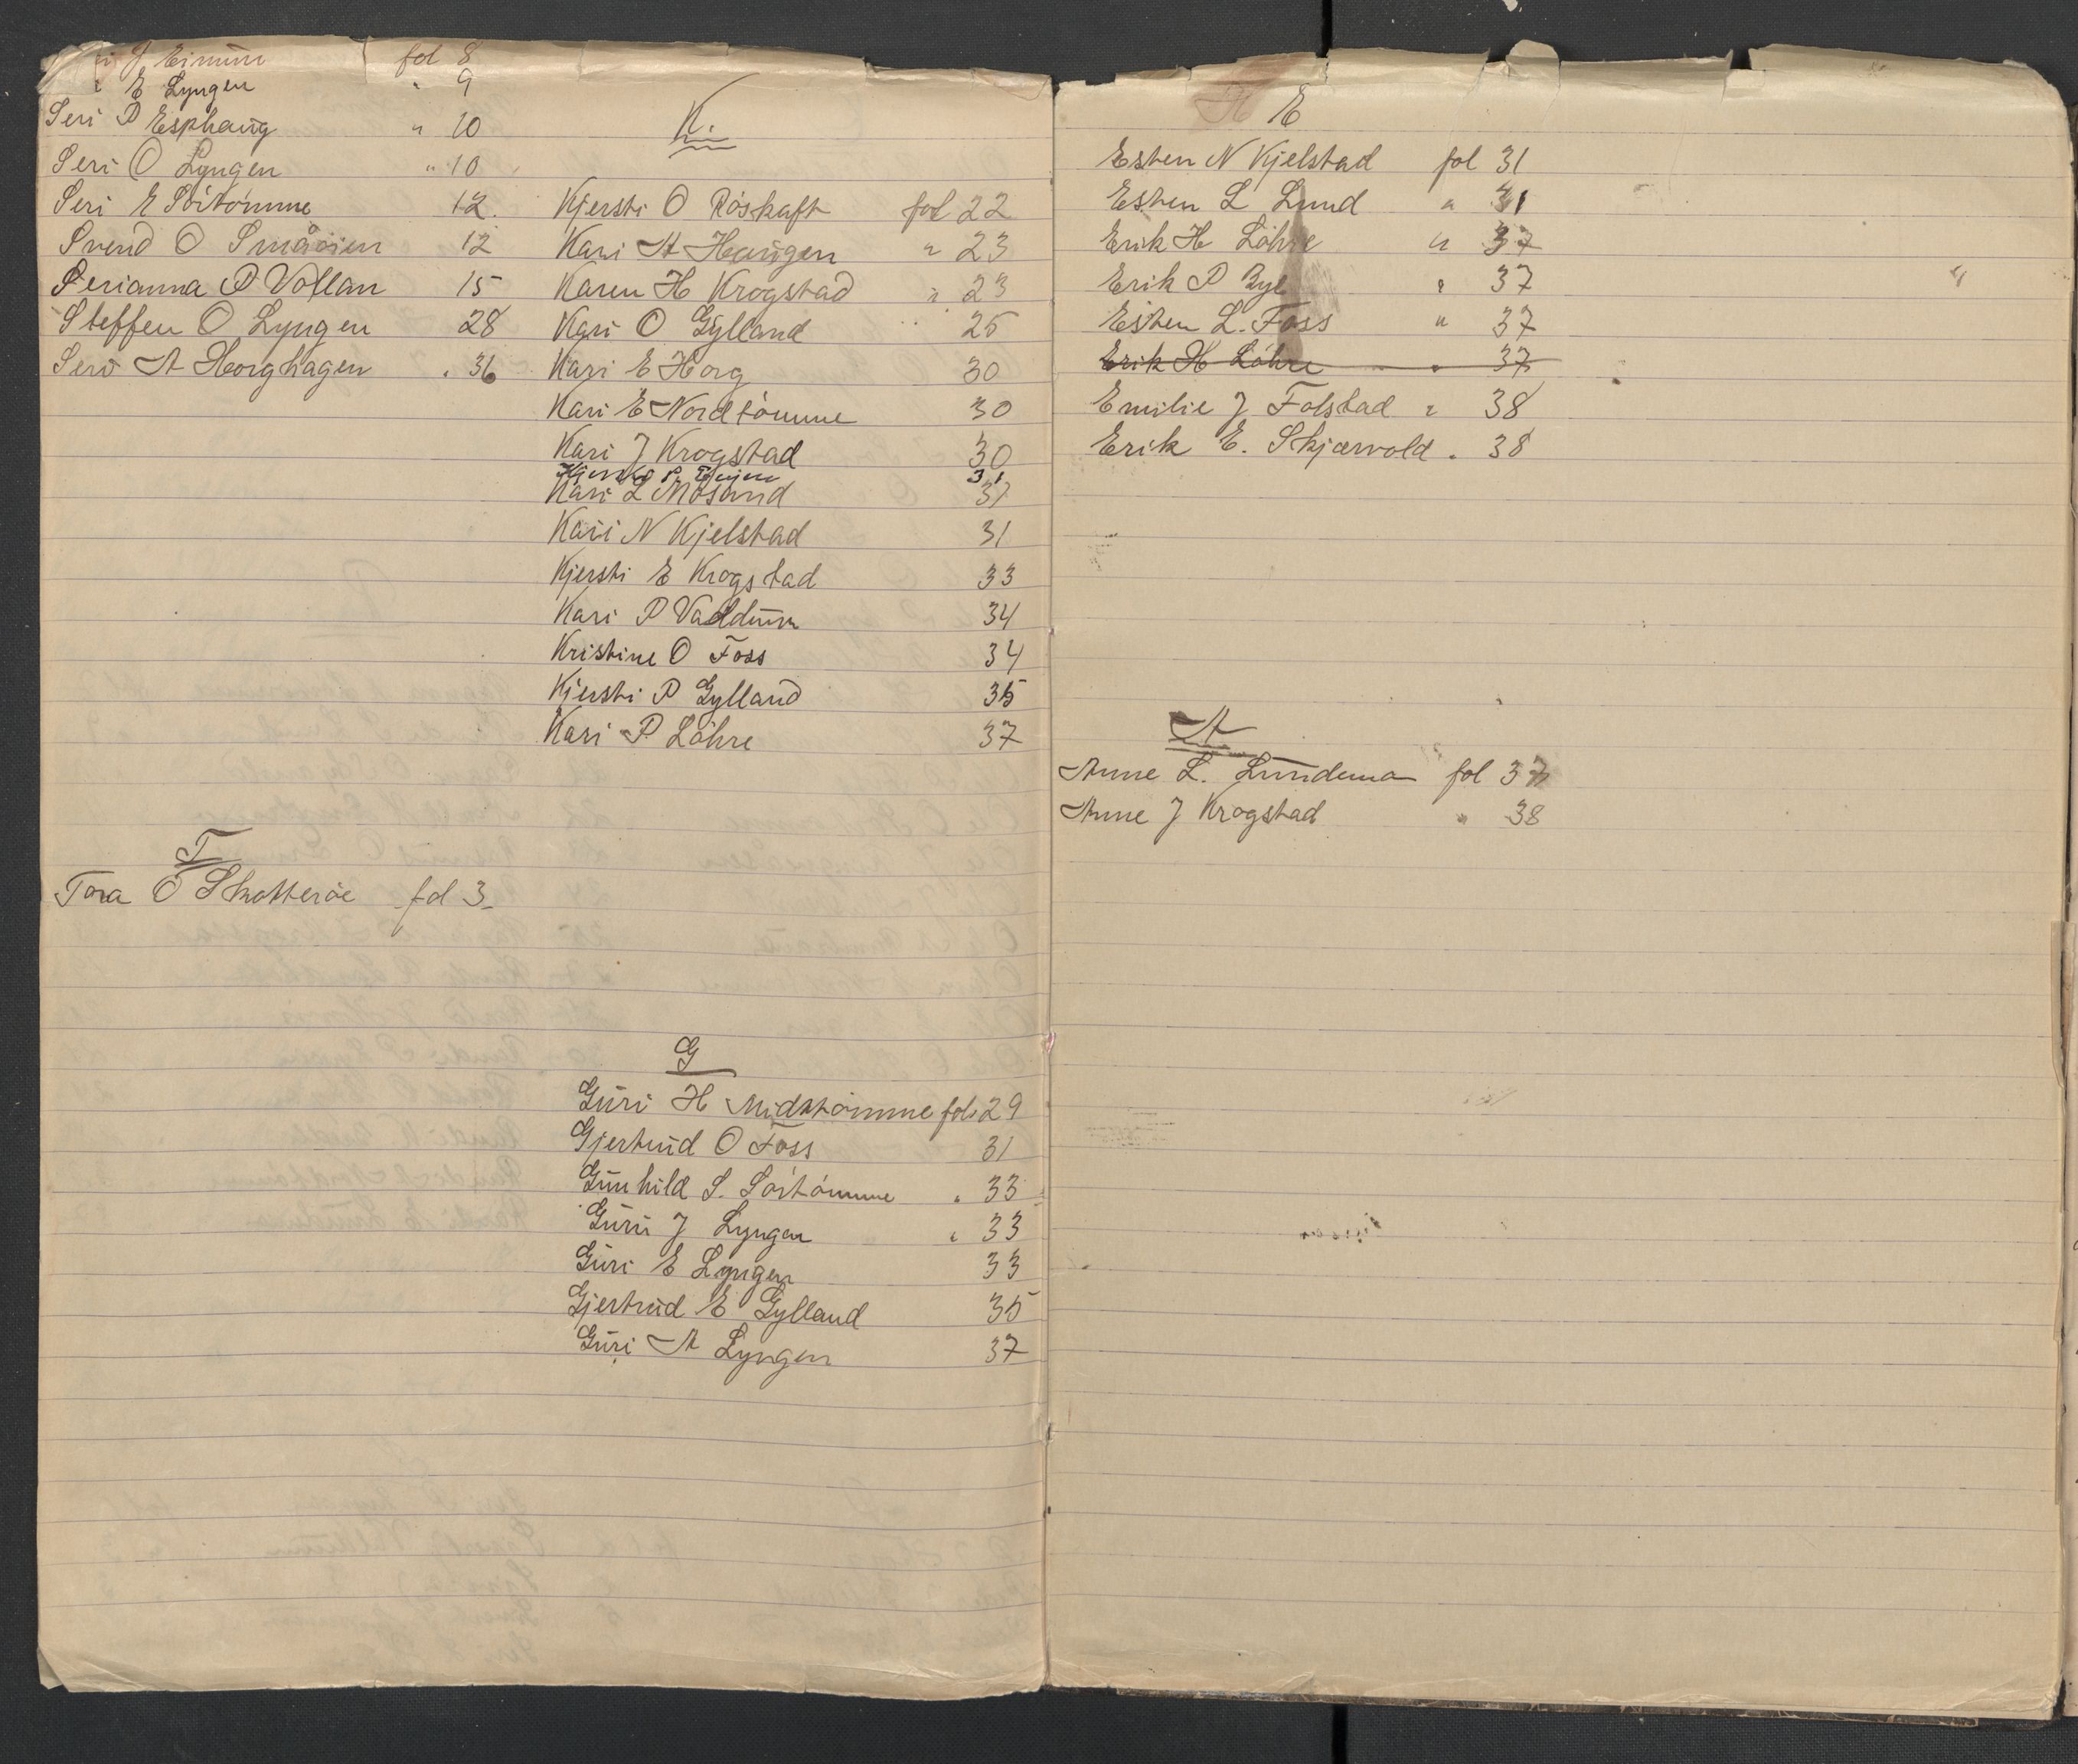 J Eimun fol 8
E Lyngen " 9
Seri P Esphaug " 10
Seri O Lyngen " 10
Seri E Söitömme 12
Svend O Småöien 12
Serianna P Vollan 15
Steffen O Lyngen 28
Seri A Horghagen " 36
T
Tora O Skatteröe fol 3
K.
Kjersti O Röskaft fol 22
Kari A Haugen " 23
Karen H Krogstad " 23
Kari O Gylland " 25
Kari E Horg 30
Kari E Nordtömme 30
Kari J Krogstad 30
Kjersti P 31
Kari L Mosand 31
Kari N Kjelstad 31
Kjersti E Krogstad 33
Kari P Valdum 34
Kristine O Foss 34
Kjersti P Gylland 35
Kari P Löhre 37
G
Guri H Midttömme fol. 29
Gjertrud O Foss 31
Gunhild S. Söitömme " 33
Guru J Lyngen " 33
Guri E Lyngen 33
Gjertrud E Gylland 35
Guri A Lyngen 37
E
Esten N Kjelstad fol 31
Esten L Lund " 31
Erik H Löhre " 37
Erik P Bye " 37
Esten L. Foss " 37
Erik H Löhre " 37
Emilie J Folstad " 38
Erik E. Skjærvold " 38
A
Anne L. Lundemo fol 37
Anne J Krogstad " 38